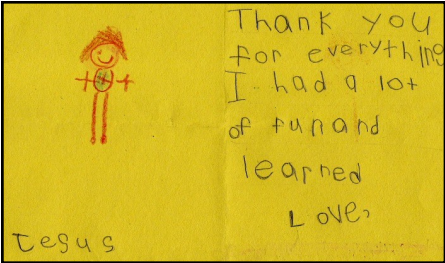 Thank you
for everything
I had a lot
of fun and
learned
Love,
Jesus